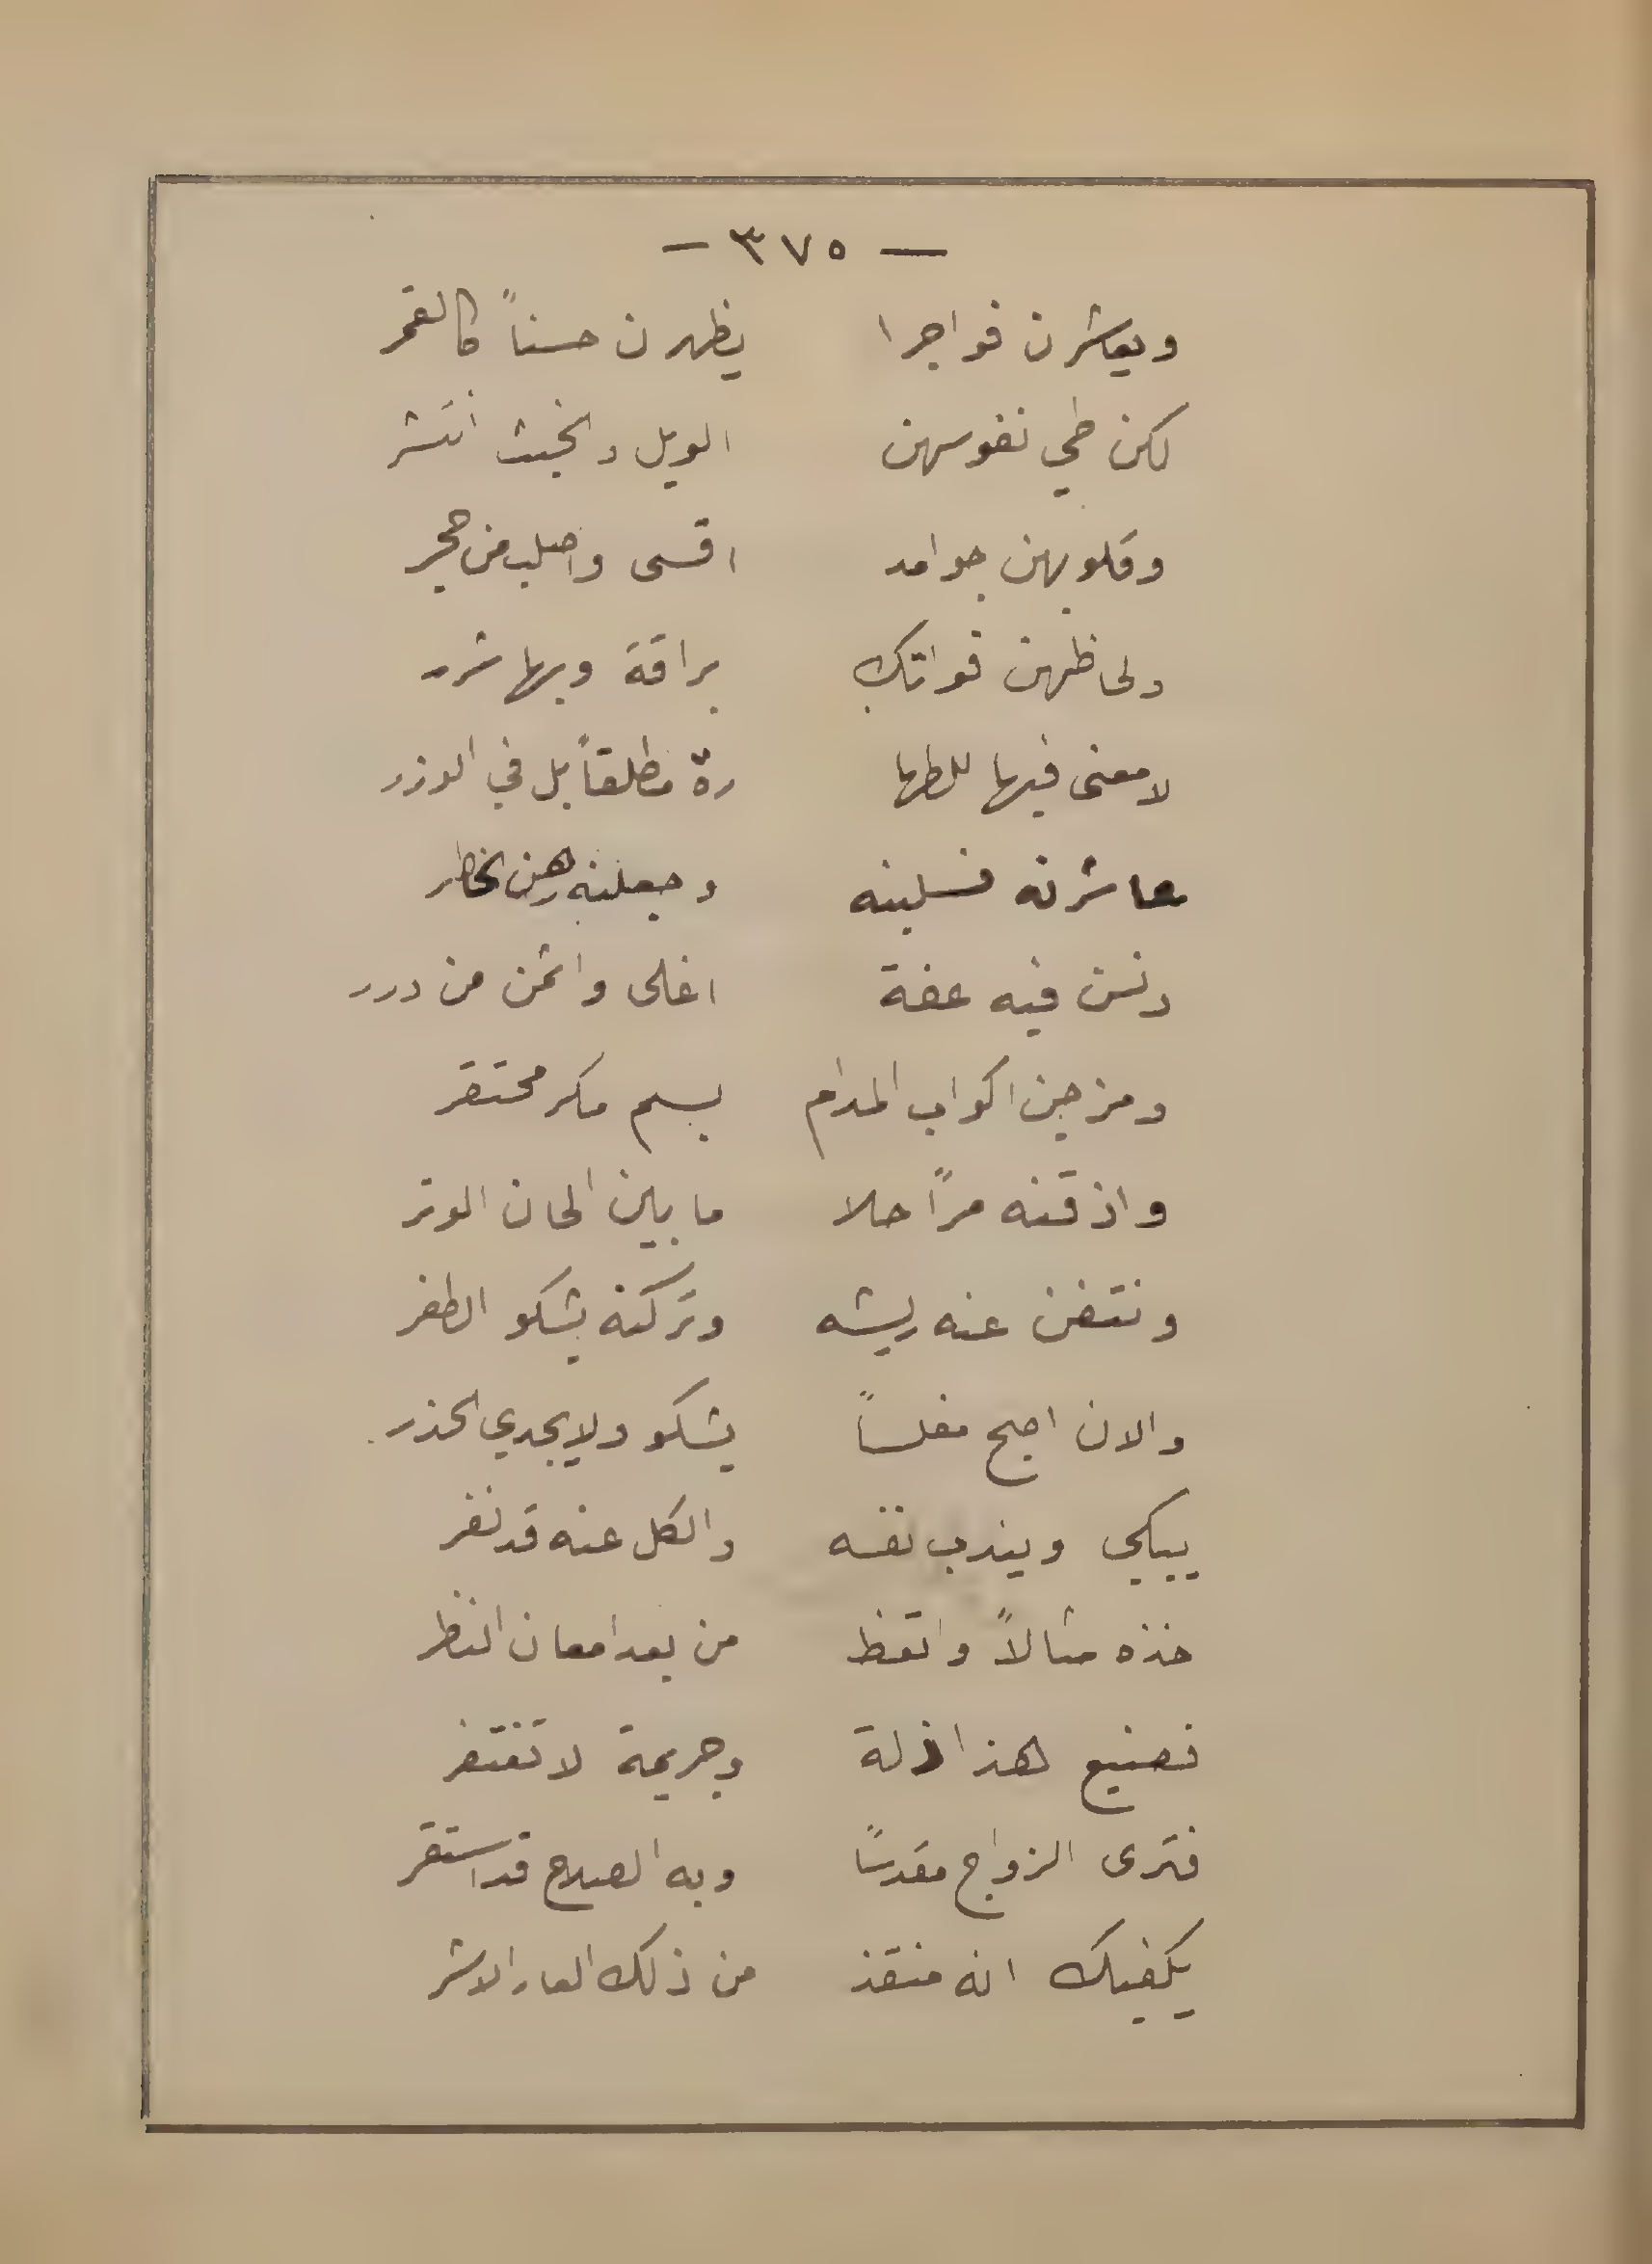 — ٣٧٥ —
ويعاشرن فواجرا يظهرن حسناً كالقمر
لكن طي نفوسهن الويل والخبث انتشر
وقلوبهن جوامد اقسى واصلب من حجر
ولحاظهن فواتك براقة وبها شرر
لا معنى فيها للطها رة مطلقاً بل في الوزر
عاشرنه فسلبنه وجعلنه رهن الخطر
دنسن فيه عفة اغلى واثمن من درر
ومزجن اكواب المدام بسم مكر محتقر
واذقنه مراً حلا ما بين الحان الوتر
ونتفن عنه ريشه وتركنه يشكو الظفر
والان اصبح مفلساً يشكو ولا يجدي الحذر
يبكي ويندب نفسه والكل عنه قد نفر
خذه مثالاً واتعظ من بعد امعان النظر
فصنيع هذا زلة وجريمة لا تغتفر
فترى الزواج مقدساً وبه الصلاح قد استقر
يكفيك انه منقذ من ذلك العار الاشر